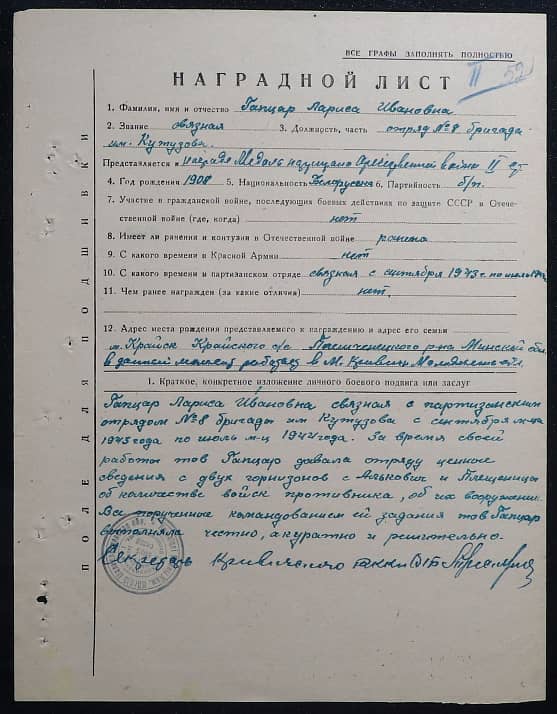 ВСЕ ГРАФЫ ЗАПОЛНЯТЬ ПОЛНОСТЬЮ
II 52
НАГРАДНОЙ ЛИСТ
1. Фамилия, имя и отчество Гапцар Лариса Ивановна
2. Звание связная 3. Должность, часть отряд №8 бригада
им. Кутузова.
Представляется к награде Медаль Отечественной войны II ст
4. Год рождения 1908 5. Национальность Белоруска 6. Партийность б/п.
7. Участие в гражданской войне, последующих боевых действиях по защите СССР и Отече-
ственной войне (где, когда) нет
8. Имеет ли ранения и контузии в Отечественной войне ранена
9. С какого времени в Красной Армии нет
10. С какого времени в партизанском отряде связная с сентября 1943 г. по июль
11. Чем ранее награжден (за какие отличия) нет.
12. Адрес места рождения представляемого к награждению и адрес его семьи
м. Крайск Крайского с/с Плещеницкого р-на Минской обл
в данный момент работает в м. Кривичи
1. Краткое, конкретное изложение личного боевого подвига или заслуг
Гапцар Лариса Ивановна связная с партизанским
отрядом №8 бригады им Кутузова с сентября м-ца
1943 года по июль м-ц 1944 года. За время своей
работы тов Гапцар давала отряду ценные
сведения с двух горнизонов с и Плещеницы
об количестве войск противника, об их вооружении.
Все порученные командованием ей задания тов Гапцар
выполняла честно, акуратно и решительно.
Секретарь
ПОЛЕ ДЛЯ ПОДШИВКИ